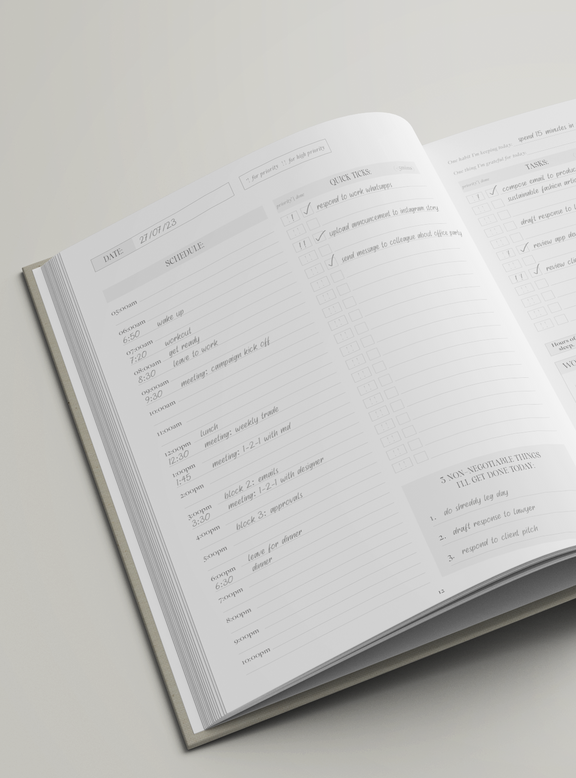 DATE 27/07/23
! for priority !! for high priority
SCHEDULE
05:00am
06:00am
6:50 wake up
07:00am workout
7:20 get ready
08:00am leave to work
8:30
09:00am meeting: campaign kick off
9:30
10:00am
11:00am
12:00pm lunch
12:30 meeting: weekly trade
1:00pm
1:45 meeting: 1-2-1 with md
2:00pm
3:00pm block 2: emails
3:30 meeting: 1-2-1 with designer
4:00pm block 3: approvals
5:00pm
6:00pm leave for dinner
6:30 dinner
7:00pm
8:00pm
9:00pm
10:00pm
QUICK TICKS
! respond to work whatsapps
!! upload announcement to instagram story
send message to colleague about office party
3 NON-NEGOTIABLE THINGS
I'LL GET DONE TODAY
1. do shreddy leg day
2. draft response to lawyer
3. respond to client pitch
12
One habit I'm keeping today: spend 15 minutes in
One thing I'm grateful for today:
TASKS
! compose email to
sustainable fashion
draft response to
! review app
!! review
Hours of
sleep